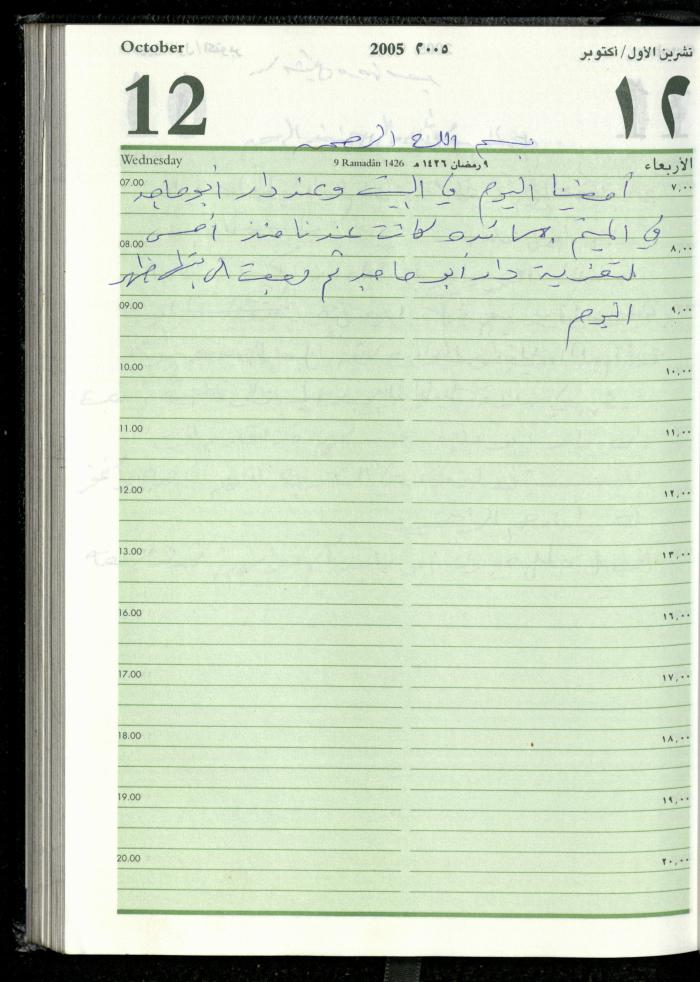 October 2005 ٢٠٠٥ تشرين الأول/أكتوبر
12 ١٢
بسم الله الرحمن
Wednesday 9 Ramadân 1426 ٩ رمضان ١٤٢٦ هـ الأربعاء
07.00 أمضينا اليوم في البيت وعند دار أبو ماجد ٧,٠٠
في الميتم كانت عندنا منذ أمس
08.00 ٨,٠٠
لتعزية دار أبو ماجد ثم ظهر
09.00 اليوم ٩,٠٠
10.00 ١٠,٠٠
11.00 ١١,٠٠
12.00 ١٢,٠٠
13.00 ١٣,٠٠
16.00 ١٦,٠٠
17.00 ١٧,٠٠
18.00 ١٨,٠٠
19.00 ١٩,٠٠
20.00 ٢٠,٠٠